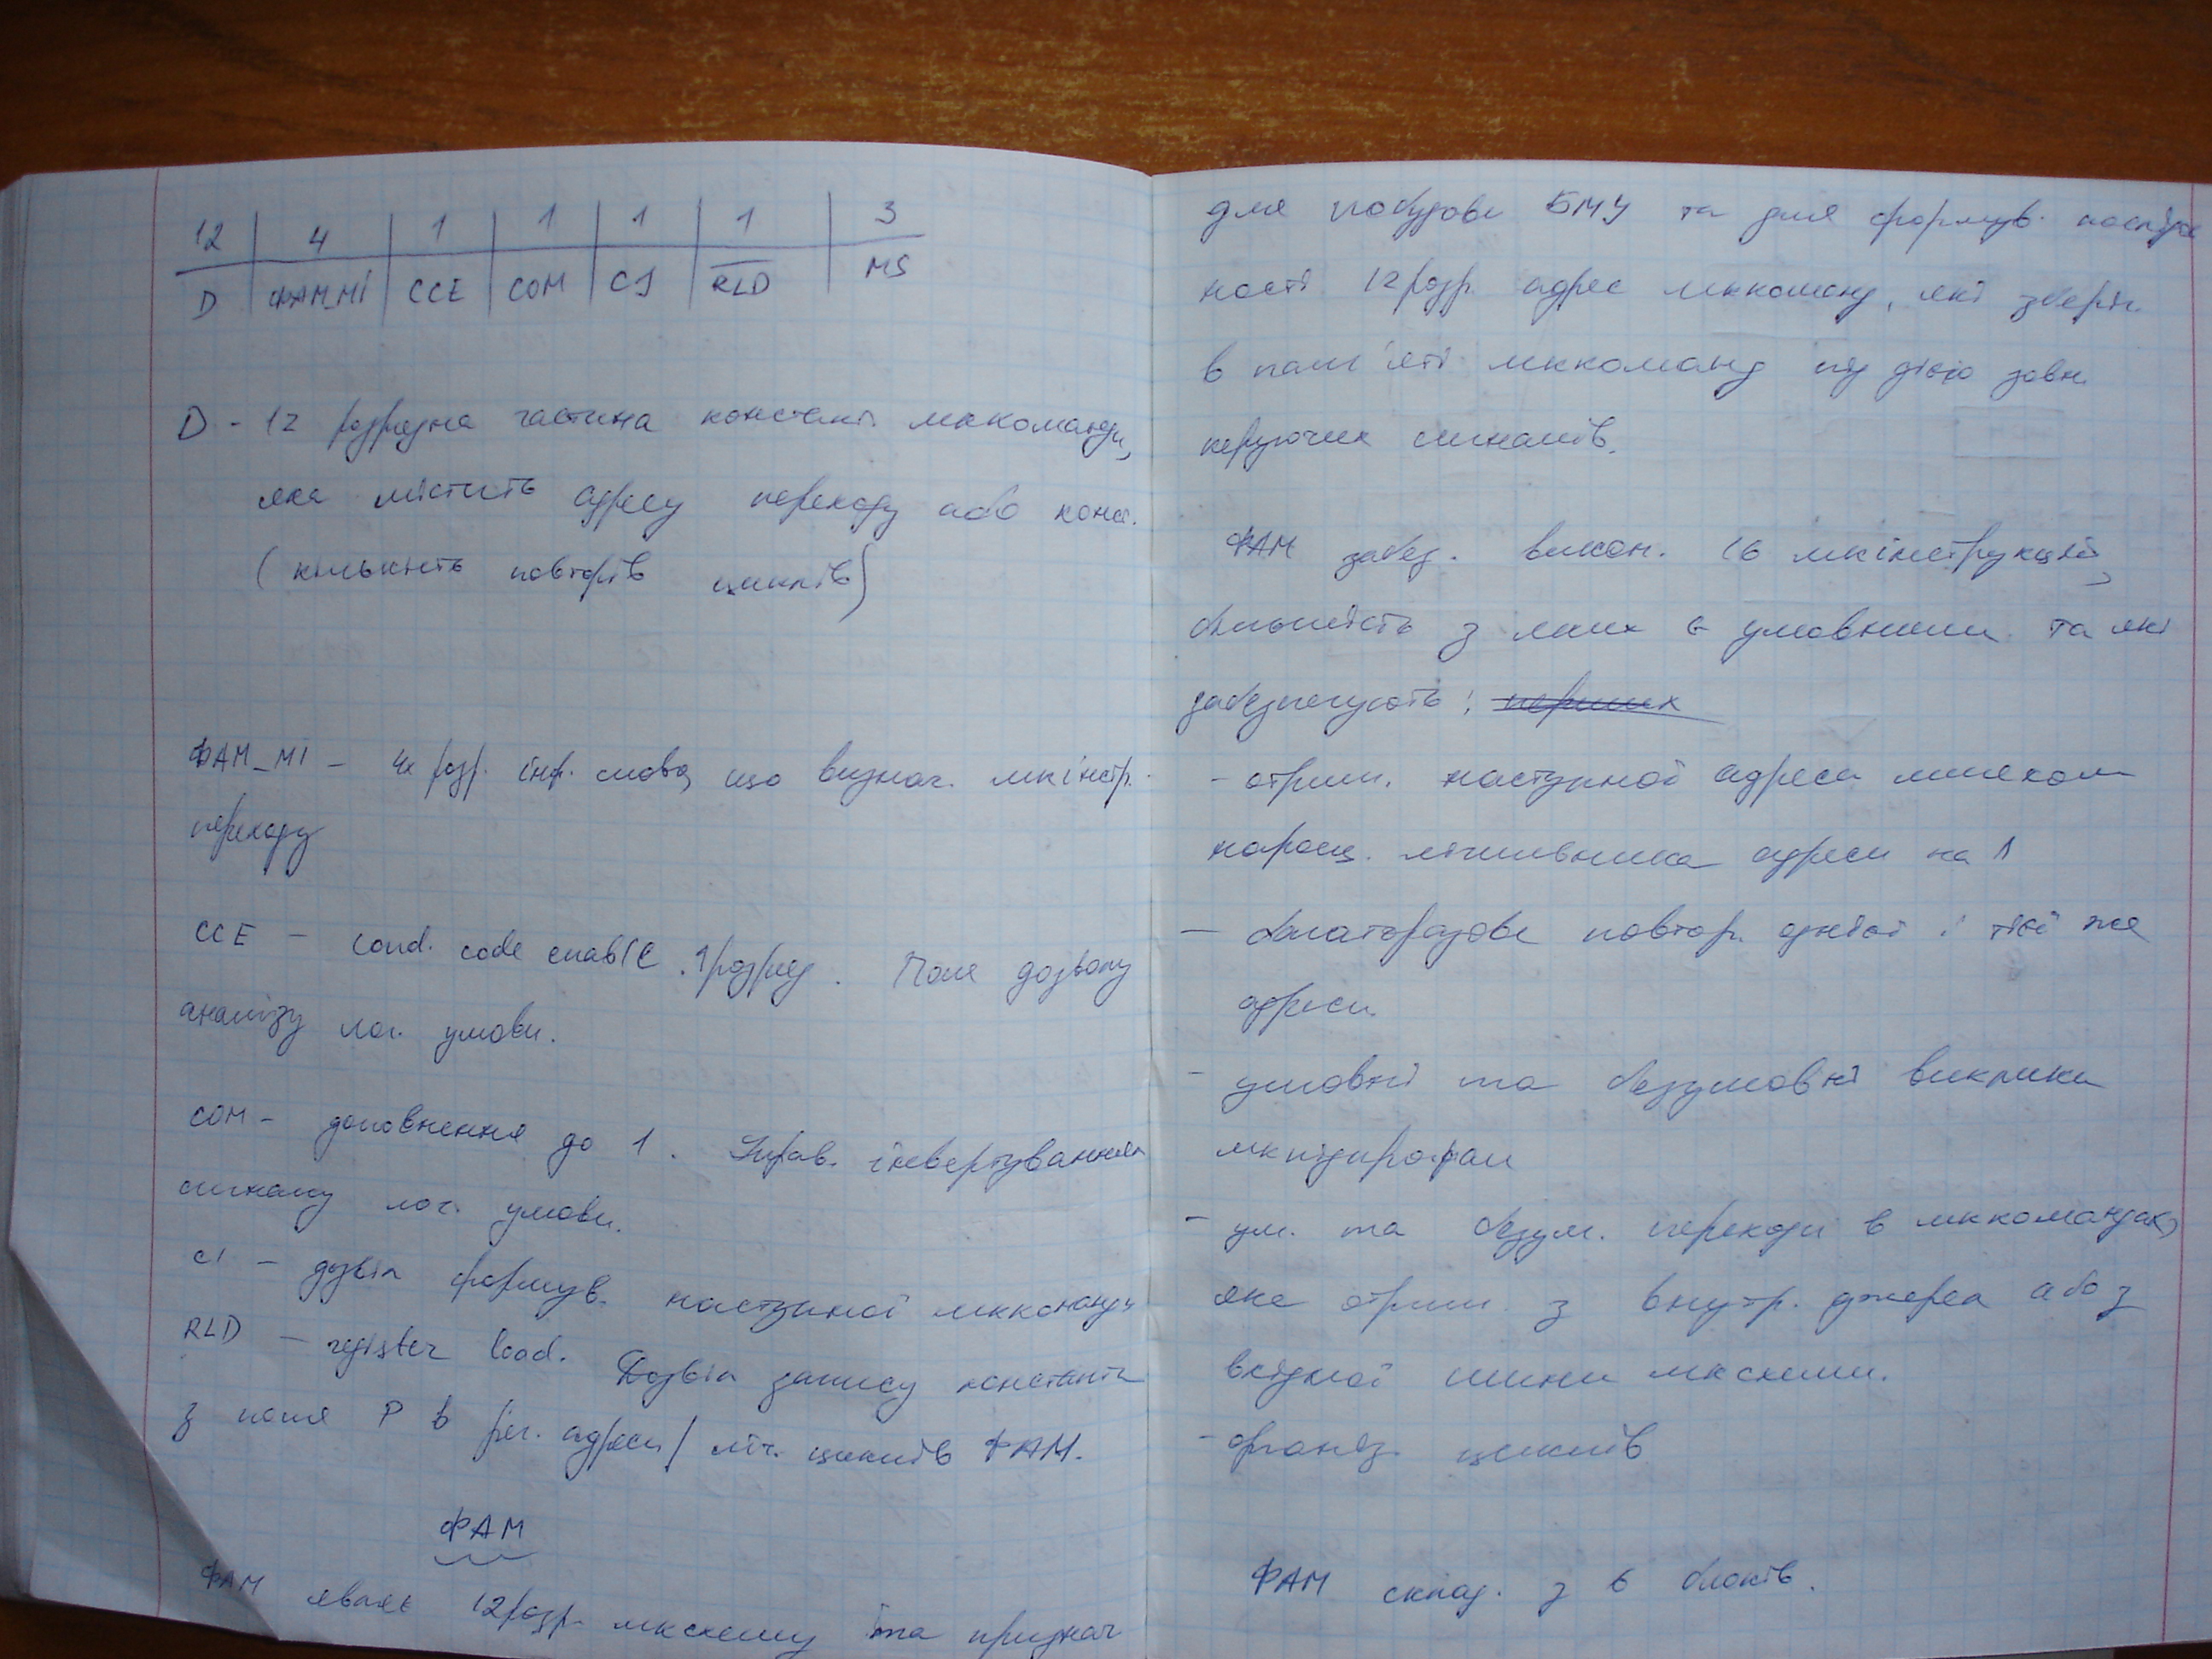 12 4 1 1 1 1 3
D ФАМ_МІ CCE COM CI RLD MS
D - 12 розрядна частина констант. мккоманди,
яка містить адресу переходу або конст.
(кількість повторів циклів)
ФАМ_МІ - 4х розр. інф. слово, що визнач. мкінстр.
переходу
CCE - cond. code enable. 1розряд. Поле дозволу
аналізу лог. умови.
COM - доповнення до 1. Управ. інвертуванням
сигналу лог. умови.
CI - дозвіл формув. наступної мккоманди
RLD - register load. Дозвіл запису константи
з поля P в рег. адреси/ліч. циклів ФАМ.
ФАМ
ФАМ являє 12розр. мксхему та признач
для побудови БМУ та для формув. послідов
ності 12розр. адрес мккоманд, які зберіг.
в пам'яті мккоманд під дією зовн.
керуючих сигналів.
ФАМ забез. викон. 16 мкінструкцій,
більшість з яких є умовними та які
забезпечують: перших
- отрим. наступної адреси шляхом
нарощ. лічильника адреси на 1
- багаторазове повтор. однієї і тієї же
адреси.
- умовні та безумовні виклики
мкпідпрограм
- ум. та безум. переходи в мккомандах,
яке отрим. з внутр. джерела або з
вхідної шини мксхеми.
- організ. циклів
ФАМ склад. з 6 блоків.